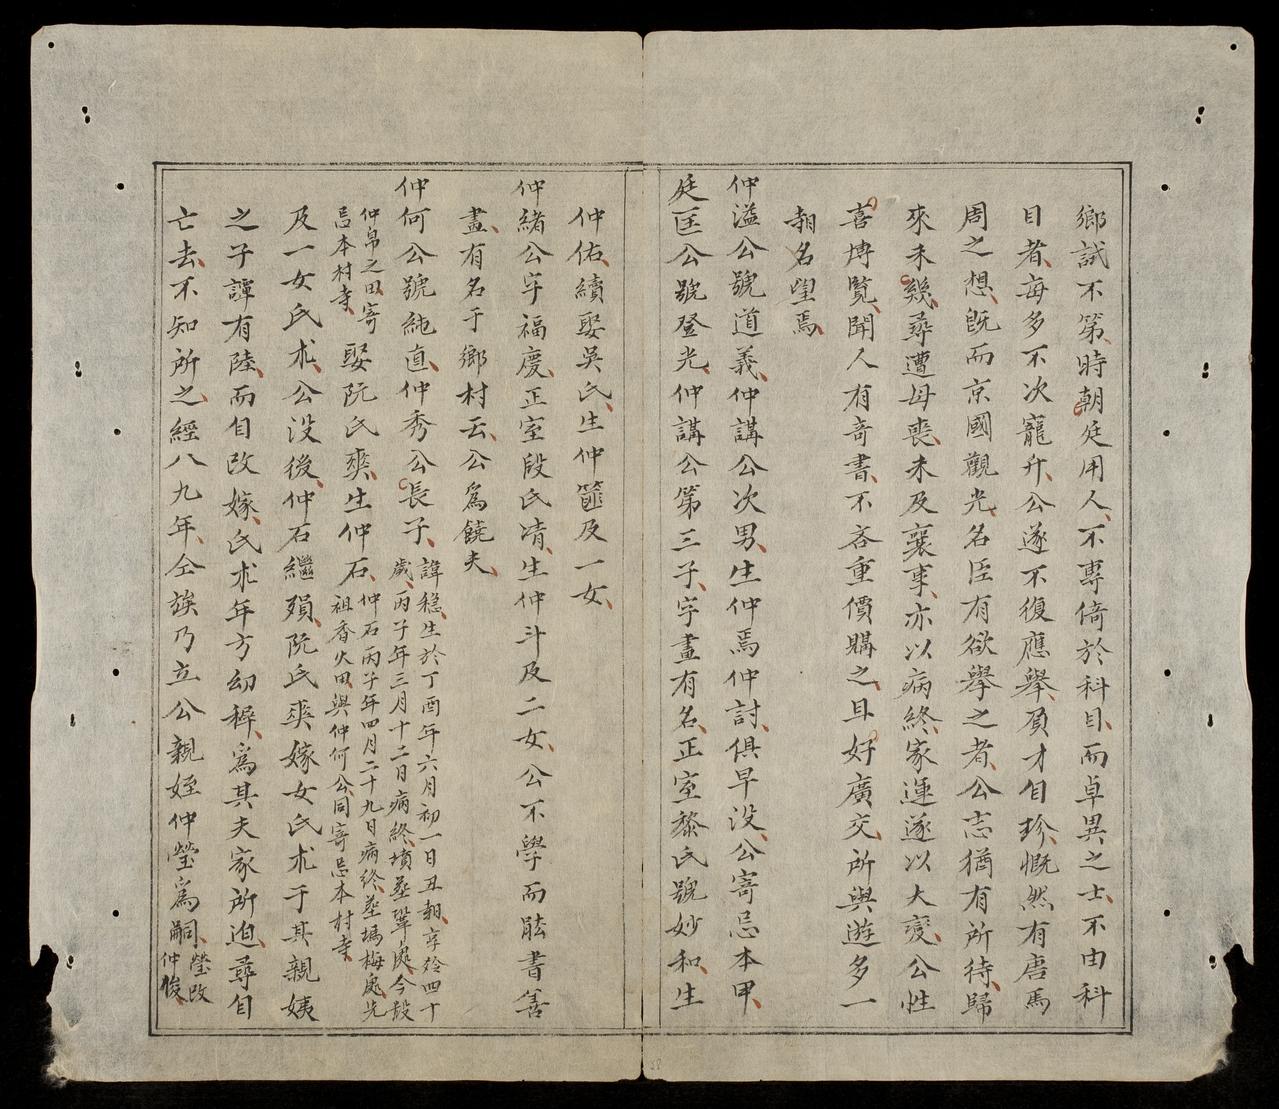 鄉試不第時朝庭用人不專倚於科目而卓異之士不由科
目者每多不次寵升公遂不復應舉負才自珍慨然有唐馬
周之想旣而京國觀光名臣有欲舉之者公志猶有所待歸
來未幾尋遭母喪未及襄事亦以病終家運遂以大變公性
喜博覽聞人有奇書不吝重價購之且好廣交所與遊多一
朝名望焉
仲溢公號道義仲講公次男生仲焉仲討俱早没公寄忌本甲
庭匡公號登光仲講公第三子字畫有名正室黎氏號妙和生
仲佑續娶吳氏生仲篚及一女
仲緒公字福慶正室段氏清生仲斗及二女公不學而能書善
畫有名于鄉村云公爲饒夫
仲何公號純直仲秀公長子諱穏生於丁酉年六月初一日丑朝享齡四十
歲丙子年三月十二日病終墳葬鞏處今設
仲帛之田寄
忌本村寺娶阮氏爽生仲石仲石丙子年四月二十九日病終葬塢梅處先
祖香火田與仲何公同寄忌本村寺
及一女氏朮公没後仲石繼殞阮氏爽嫁女氏朮于其親姨
之子諱有陸而自改嫁氏朮年方幼穉爲其夫家所迫尋自
亡去不知所之經八九年仝族乃立公親姪仲瑩爲嗣瑩改
仲俊